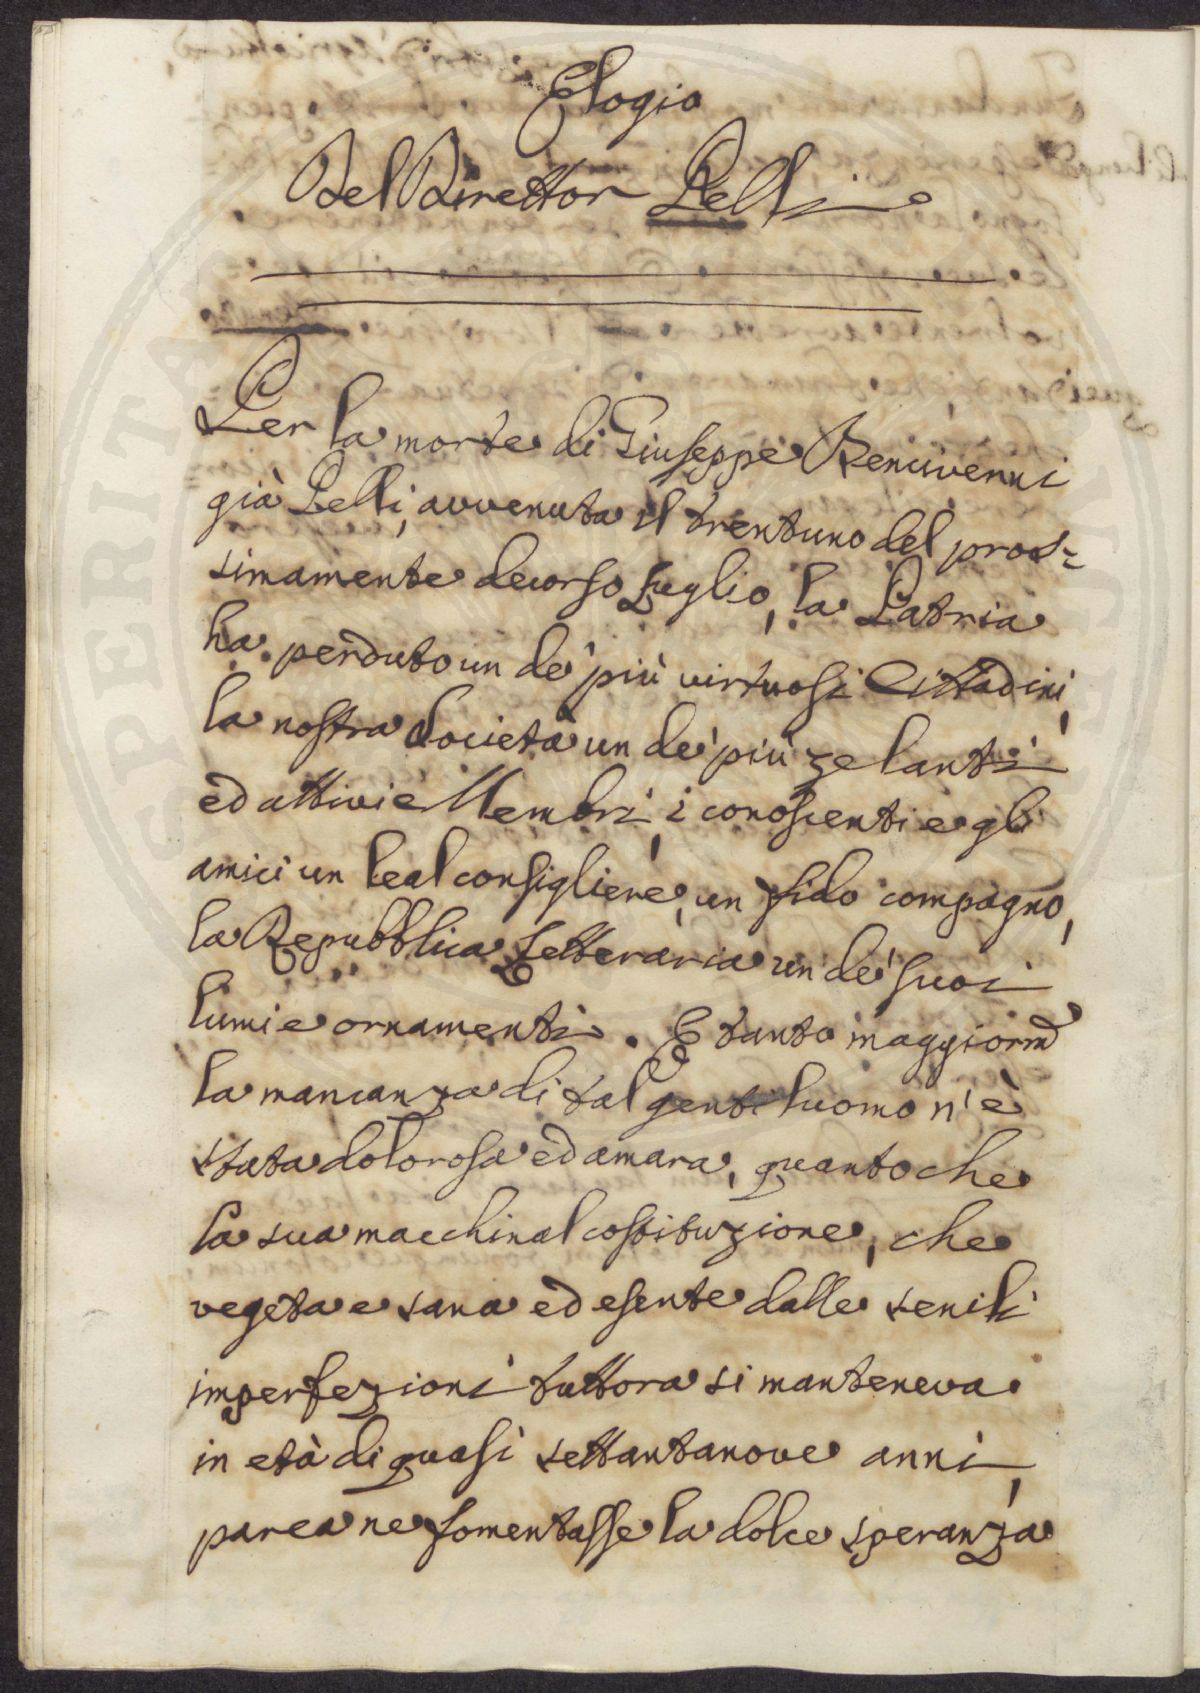 Elogio
Del Direttor Pelli
Per la morte di Giuseppe Bencivenni
già Pelli, avvenuta il trentuno del pros=
simamente decorso Luglio, la Patria
ha perduto un de' più virtuosi Cittadini,
la nostra Società un de' più zelanti
ed attivi Membri, i conoscenti e gli
amici un leal consigliere, un fido compagno,
la Repubblica Letteraria un de' suoi
lumi e ornamenti. E tanto maggiorm.e
la mancanza di tal gentiluomo n'è
stata dolorosa ed amara, quanto che
la sua macchinal costituzione, che
vegeta e sana ed esente dalle senili
imperfezioni tuttora si manteneva
in età di quasi settantanove anni,
parea ne fomentasse la dolce speranza